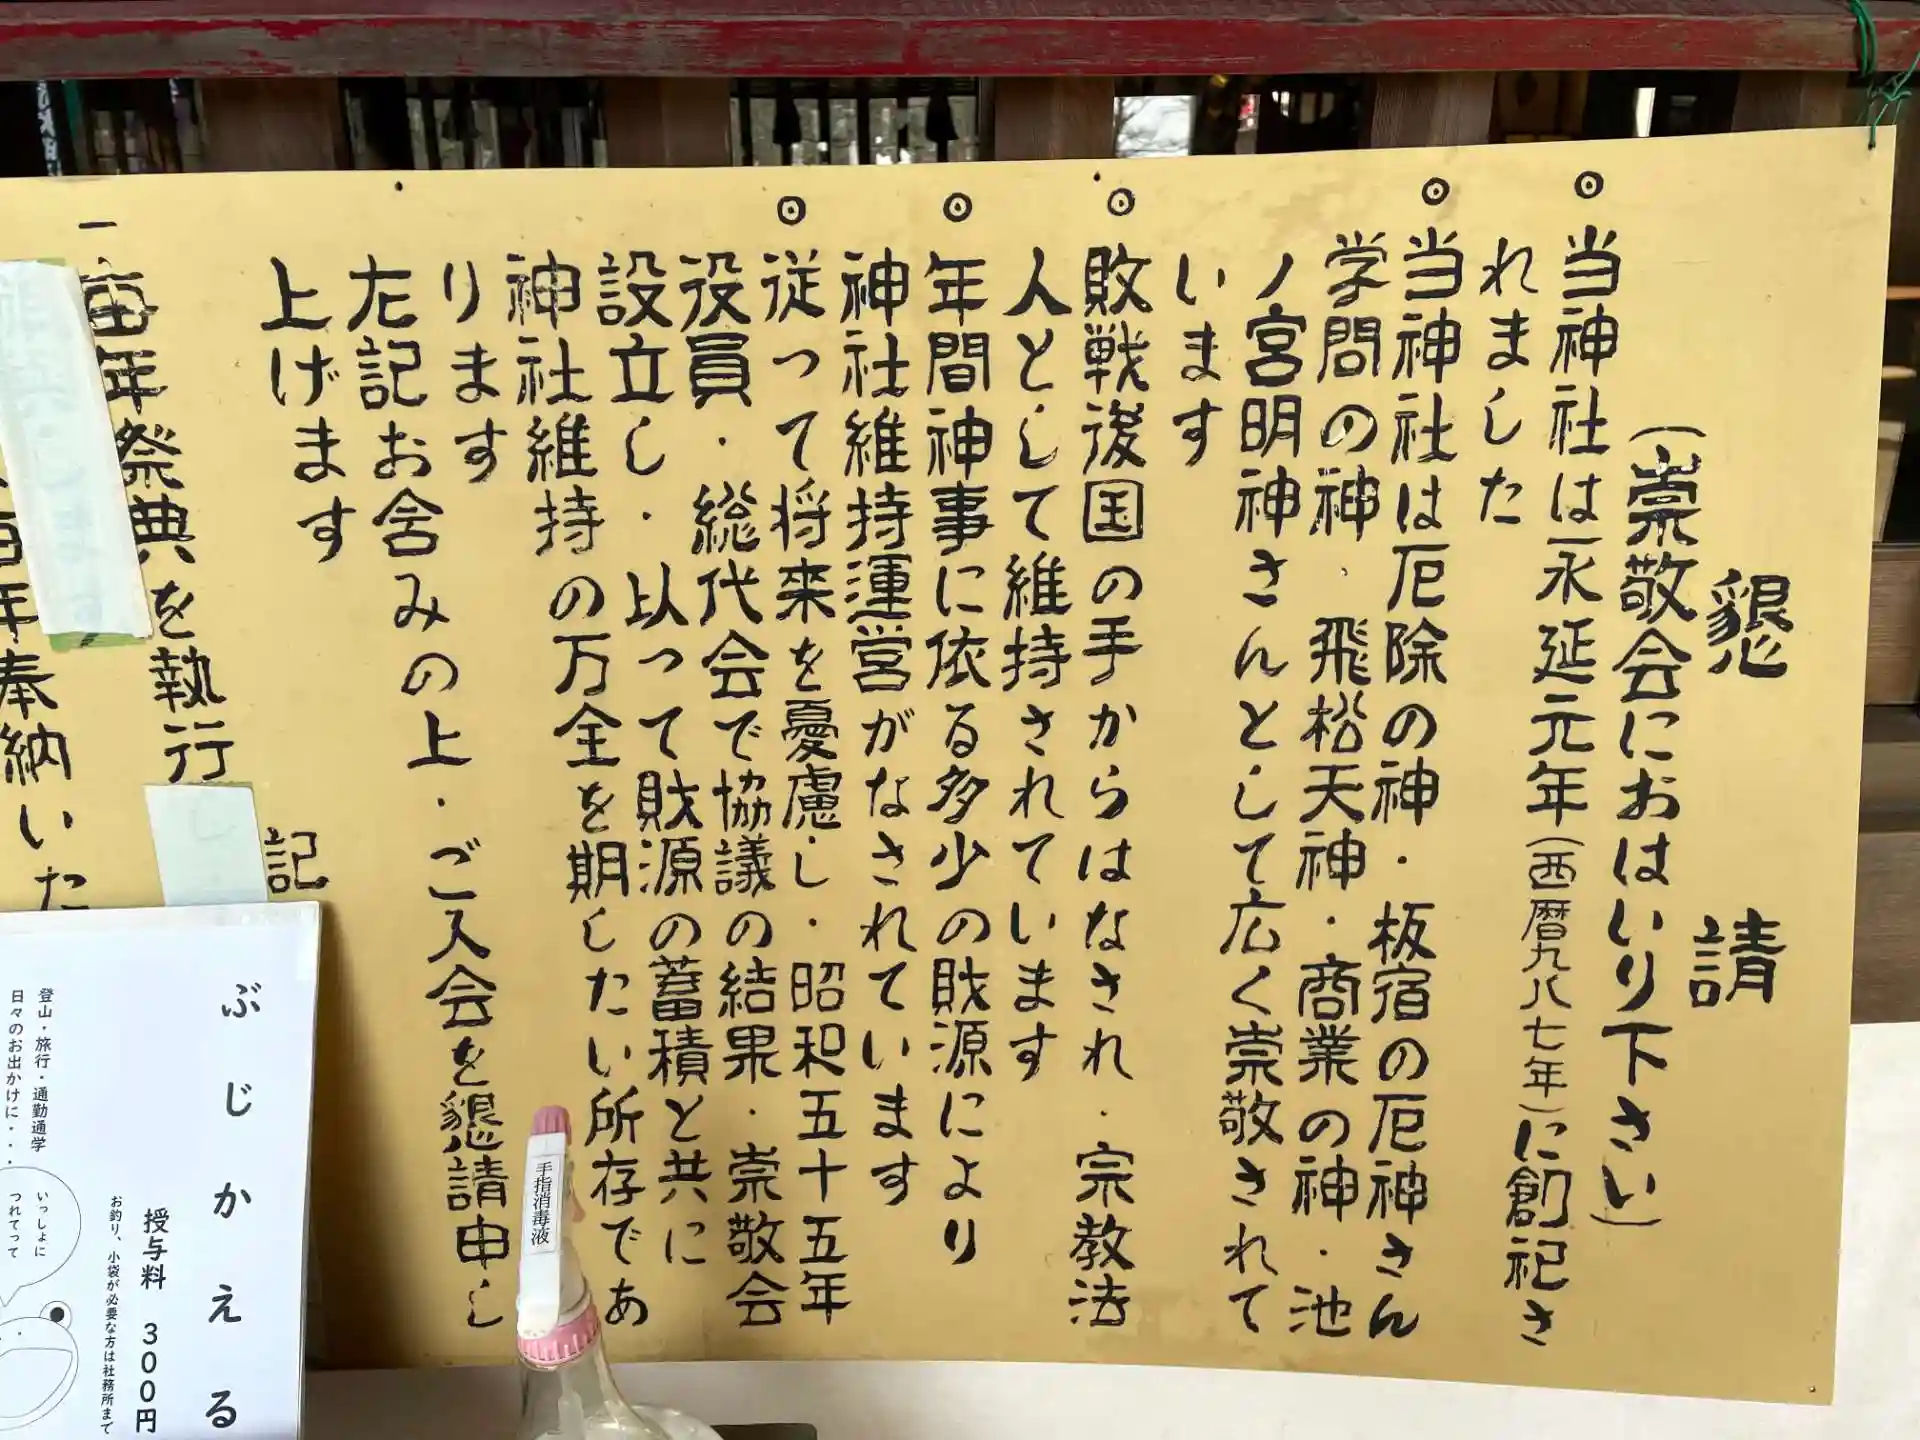 懇請
(崇敬会におはいり下さい)
◎当神社は永延元年(西暦九八七年)に創祀さ
れました
◎当神社は厄除の神・板宿の厄神さん
学問の神、飛松天神・商業の神・池
ノ宮明神さんとして広く崇敬されて
います
◎敗戦後国の手からはなされ・宗教法
人として維持されています
◎年間神事に依る多少の財源により
神社維持運営がなされています
◎従って将来を憂慮し・昭和五十五年
役員・総代会で協議の結果・崇敬会
設立し・以って財源の蓄積と共に
神社維持の万全を期したい所存であ
ります
左記お含みの上・ご入会を懇請申し
上げます
記
一
年祭典を執行
年奉納いた
ぶじかえる
授与料 300円
お釣り、小袋が必要な方は社務所まで
登山・旅行・通勤通学
日々のお出かけに・・・
いっしょに
つれてって
手指消毒液